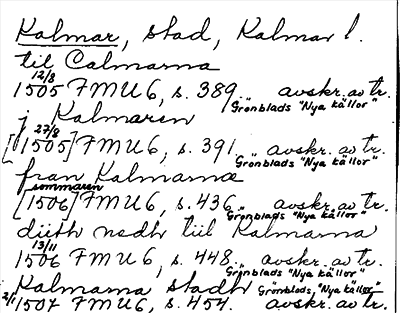 Kalmar, stad, Kalmar l.
til Calmarna
12/8
1505 FMU 6, s. 389. avskr. av tr.
Grönblads "Nya källor"
j Kalmaren
27/8
[1505] FMU 6, s. 391. avskr. av tr.
Grönblads "Nya källor"
fran Kalmarnæ
sommaren
[1506] FMU 6, s. 436. avskr. av tr.
Grönblads "Nya källor"
diith nedh till Kalmarna
13/11
1506 FMU 6, s. 448. avskr. av tr.
Grönblads "Nya källor"
Kalmarna stadh Grönblads, "Nya källor"
2/1 1507 FMU 6, s. 454. avskr. av tr.